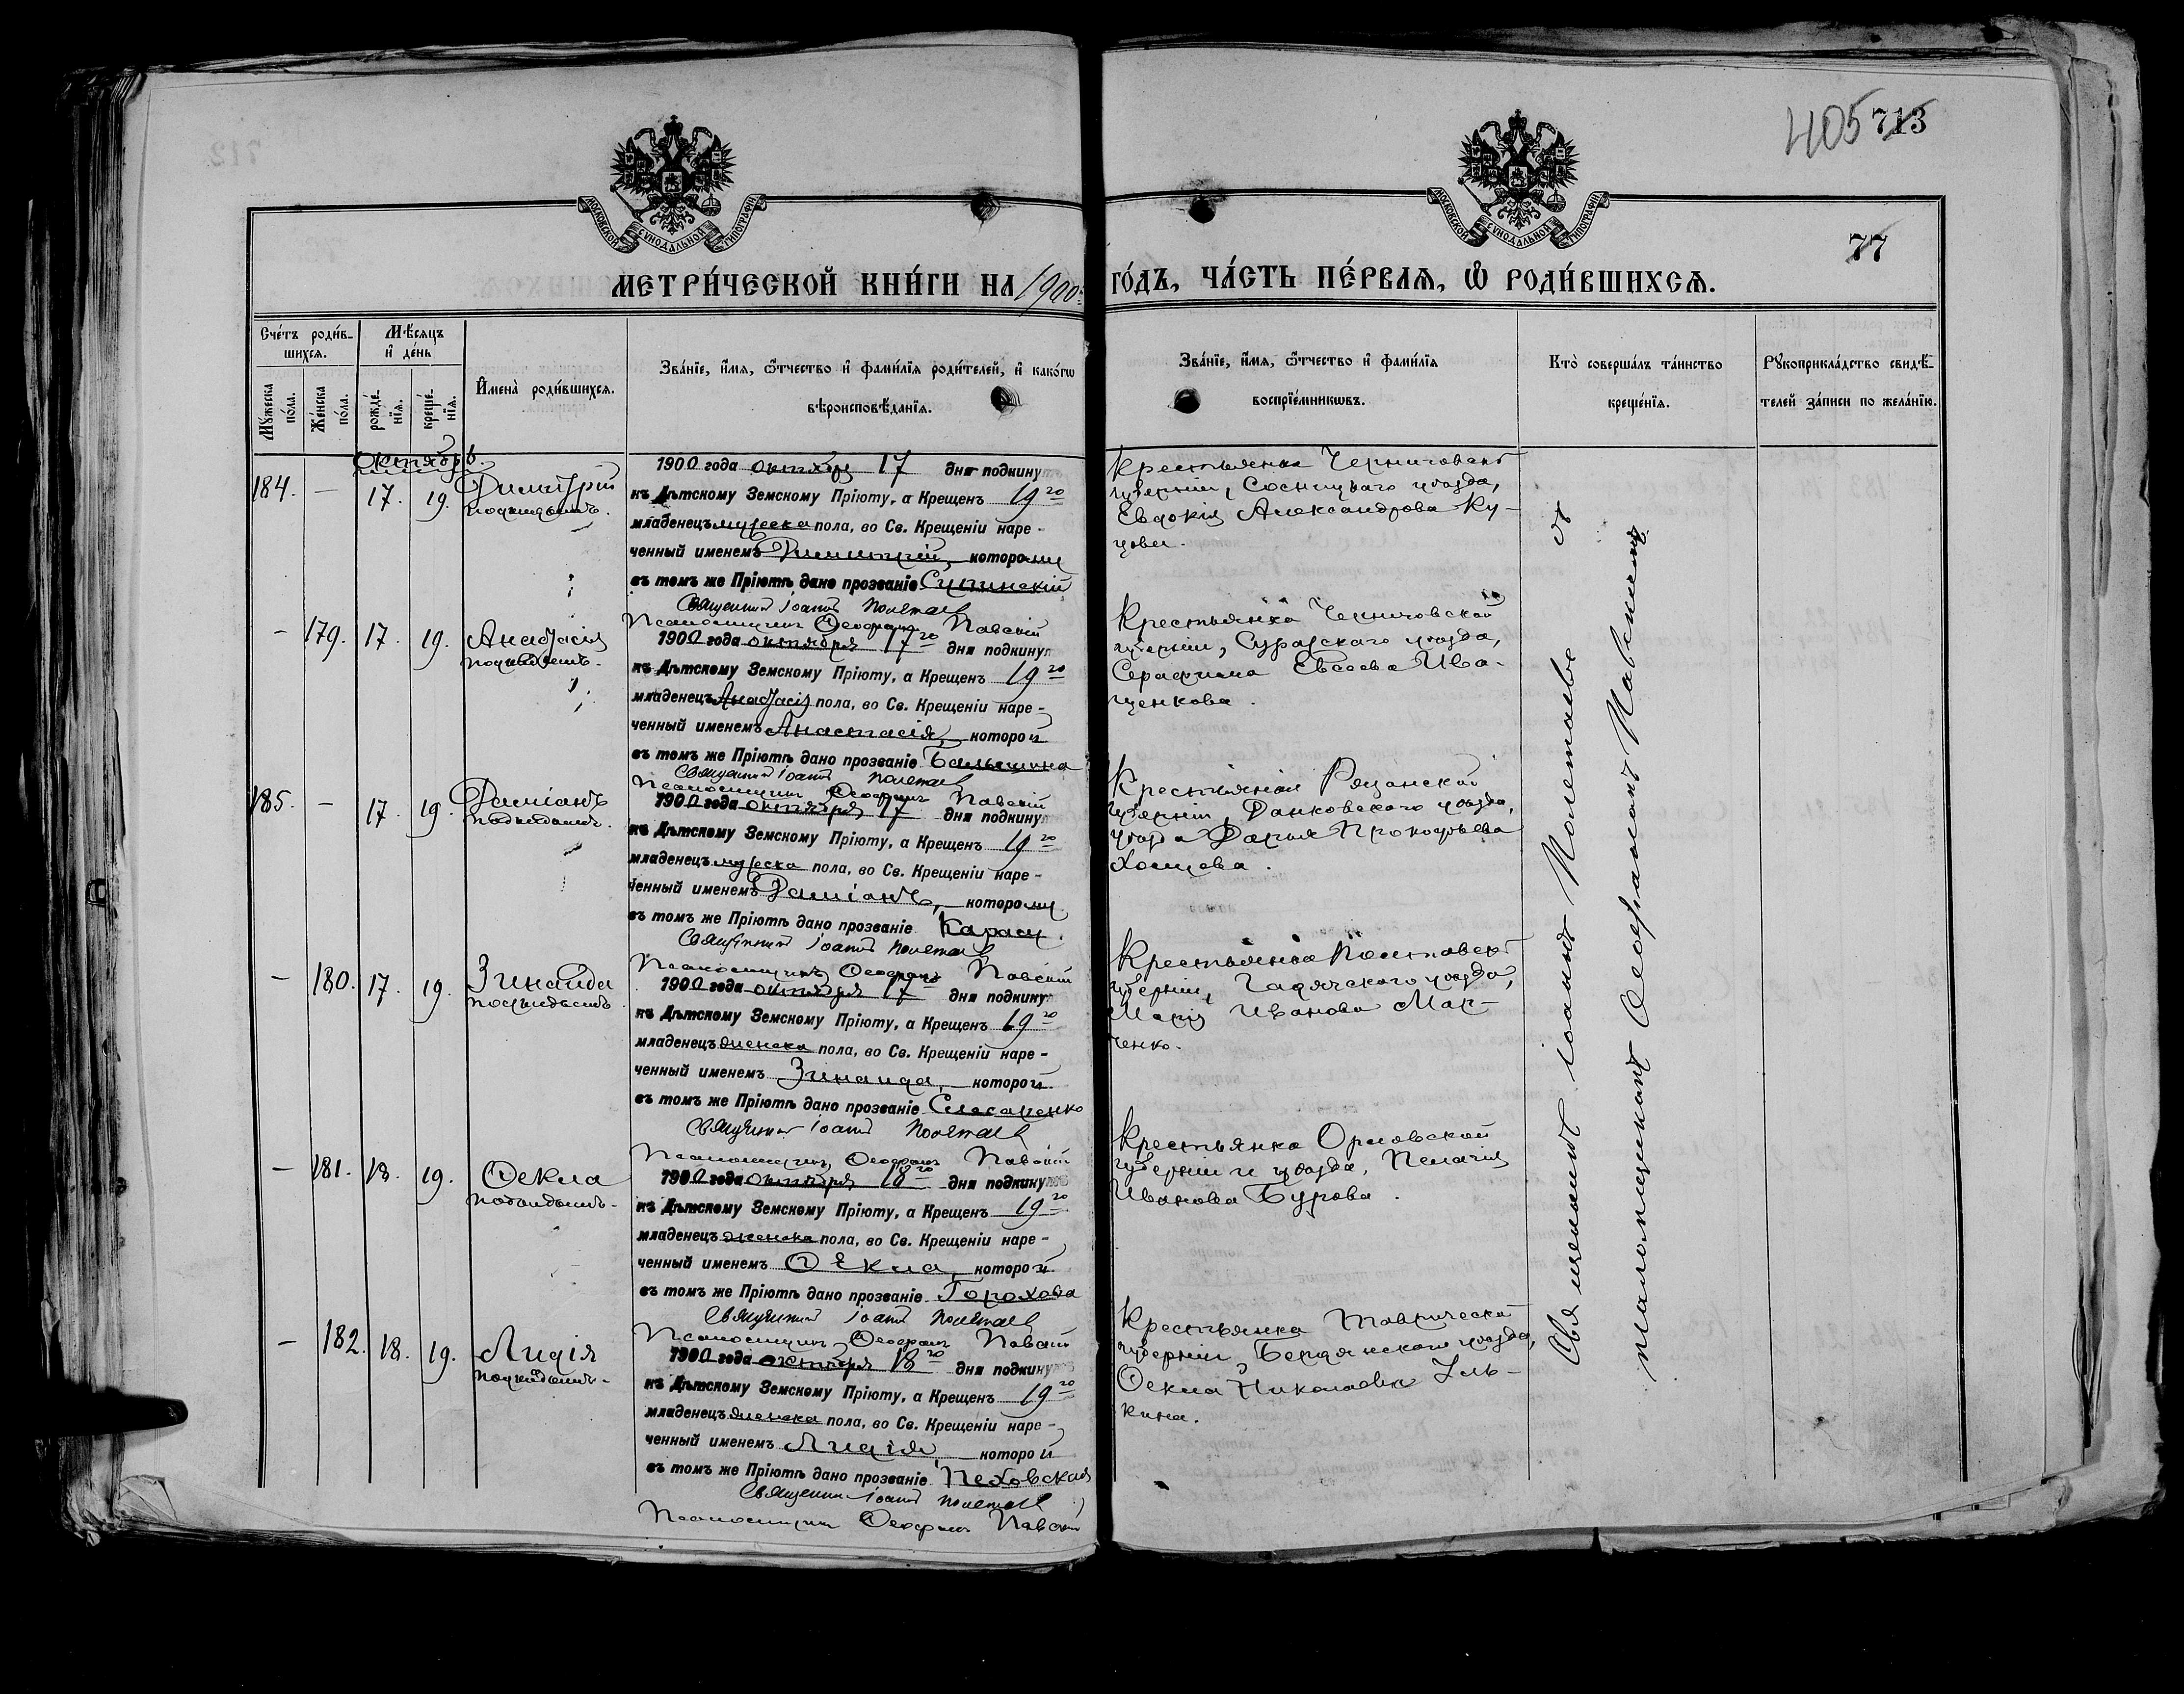 405 713
77
МОСКОВСКОЙ СѴНОДАЛЬНОЙ ТИПОГРАФІИ
МОСКОВСКОЙ СѴНОДАЛЬНОЙ ТИПОГРАФІИ
МЕТРИ́ЧЕСКОЙ КНИ́ГИ НА 1900 ГО́ДЪ, ЧА́СТЬ ПЕ́РВАѦ, Ѽ РОДИ́ВШИХСѦ.
Сче́тъ роди́в-
шихсѧ.
Мꙋжеска по́ла.
Же́нска по́ла.
Мѣ́сѧцъ
и҆ де́нь
рожде́-
нїѧ.
креще́-
нїѧ.
И҆мена̀ роди́вшихсѧ.
Зва́нїе, и҆́мѧ, ѻ҆́тчество и҆ фами́лїѧ роди́телей, и҆ како́гѡ
вѣроисповѣ́данїѧ.
Зва́нїе, и҆́мѧ, ѻ҆́тчество и҆ фами́лїѧ
воспрїе́мникѡвъ.
Кто̀ соверша́лъ та́инство
креще́нїѧ.
Рꙋкоприкла́дство свидѣ́-
телей за́писи по жела́нїю.
Октябрь.
184. — 17. 19. Димитрій
подкидышъ.
1900 года октября 17 дня подкину
къ Дѣтскому Земскому Пріюту, а Крещенъ 19го
младенецъ мужеска пола, во Св. Крещеніи наре-
ченный именемъ Димитрій, которому
въ томъ же Пріютѣ дано прозваніе
Священникъ Іоаннъ Полетаевъ
Псаломщикъ Ѳеофанъ Павскій
Крестьянка Черниговской
губерніи, Сосницкаго уѣзда,
Евдокія Александрова Ку-
цова.
— 179. 17. 19. Анастасія
подкидышъ.
1900 года октября 17го дня подкинут
къ Дѣтскому Земскому Пріюту, а Крещенъ 19го
младенецъ Анастасія пола, во Св. Крещеніи наре-
ченный именемъ Анастасія, которой
въ томъ же Пріютѣ дано прозваніе
Священникъ Іоаннъ Полетаевъ
Псаломщикъ Ѳеофанъ Павскій
Крестьянка Черниговской
губерніи, Суражскаго уѣзда,
Серафима Евсеева Ива-
щенкова.
185. — 17. 19. Даміанъ
подкидышъ.
1900 года октября 17 дня подкинут
къ Дѣтскому Земскому Пріюту, а Крещенъ 19го
младенецъ мужеска пола, во Св. Крещеніи наре-
ченный именемъ Даміанъ, которому
въ томъ же Пріютѣ дано прозваніе
Священникъ Іоаннъ Полетаевъ
Псаломщикъ Ѳеофанъ Павскій
Крестьянка Рязанской
губерніи, Данковскаго уѣзда,
уѣзда Дарья Прокофьева
— 180. 17. 19. Зинаида
подкидышъ.
1900 года октября 17 дня подкинут
къ Дѣтскому Земскому Пріюту, а Крещенъ 19го
младенецъ женска пола, во Св. Крещеніи наре-
ченный именемъ Зинаида, которой
въ томъ же Пріютѣ дано прозваніе Слесаренко
Священникъ Іоаннъ Полетаевъ
Псаломщикъ Ѳеофанъ Павскій
Крестьянка Полтавской
губерніи, Гадячскаго уѣзда,
Марія Иванова Мар-
ченко.
— 181. 18. 19. Ѳекла
подкидышъ.
1900 года октября 18го дня подкинут
къ Дѣтскому Земскому Пріюту, а Крещенъ 19го
младенецъ женска пола, во Св. Крещеніи наре-
ченный именемъ Ѳекла, которой
въ томъ же Пріютѣ дано прозваніе Горохова
Священникъ Іоаннъ Полетаевъ
Псаломщикъ Ѳеофанъ Павскій
Крестьянка Орловской
губерніи и уѣзда, Пелагія
Иванова Бурова.
— 182. 18. 19. Лидія
подкидышъ.
1900 года октября 18го дня подкинут
къ Дѣтскому Земскому Пріюту, а Крещенъ 19го
младенецъ женска пола, во Св. Крещеніи наре-
ченный именемъ Лидія, которой
въ томъ же Пріютѣ дано прозваніе Пеховская
Священникъ Іоаннъ Полетаевъ
Псаломщикъ Ѳеофанъ Павскій
Крестьянка Таврической
губерніи, Бердянскаго уѣзда,
Ѳекла Николаева Уль-
кина.
Священникъ Іоаннъ Полетаевъ съ
псаломщикомъ Ѳеофаномъ Павскимъ